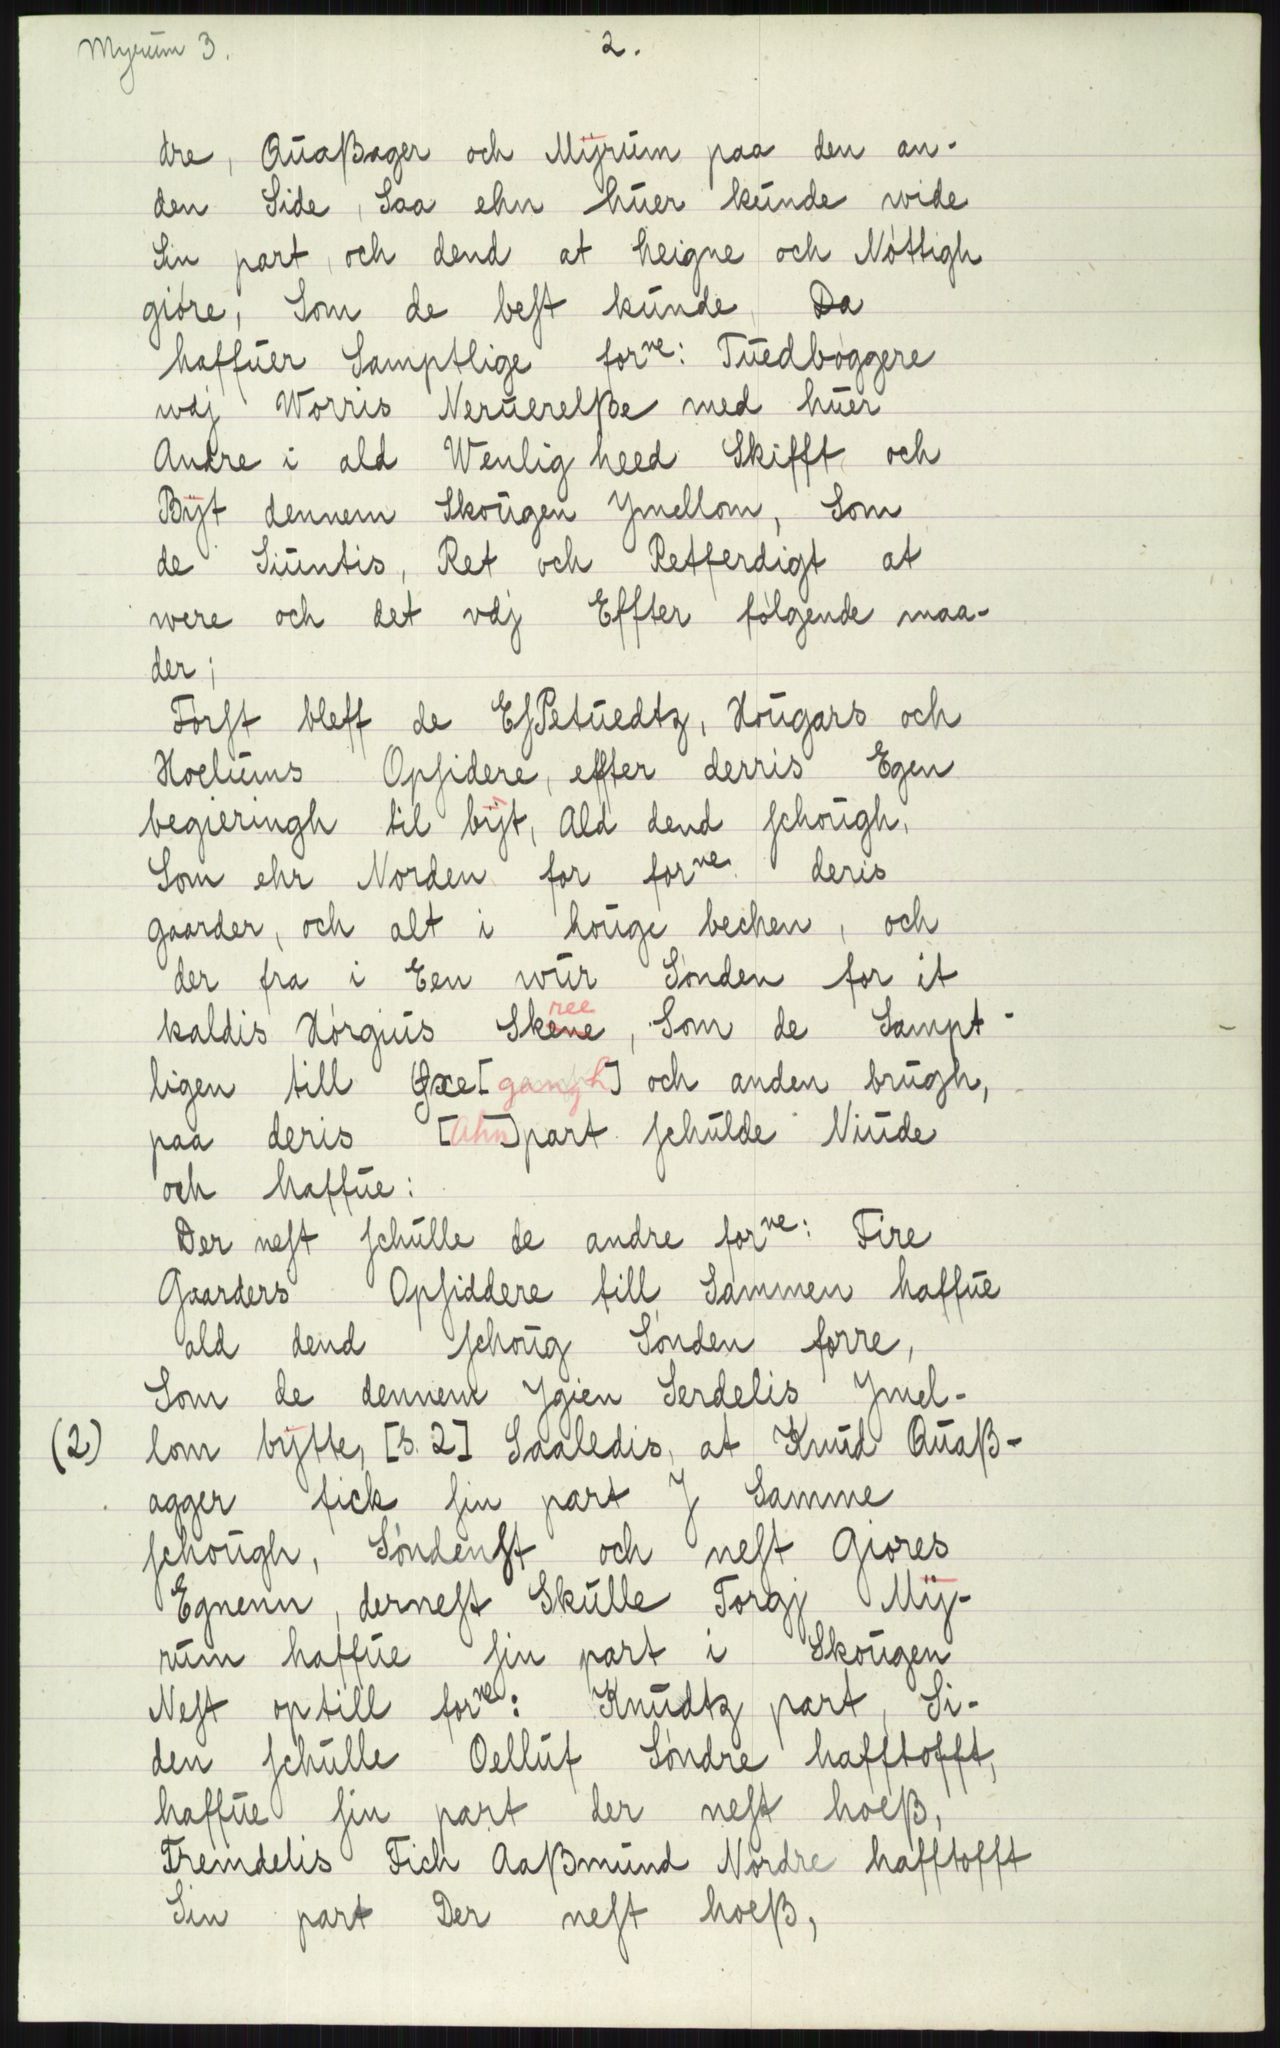 Myrum 3.
2.
dre, Quaßager och Mÿrum paa den an-
den Side, Saa ehn huer kunde wide
Sin part, och dend at heigne och Nøttigh
giøre, Som de best kunde, Da
haffuer Samptlige forne: Tuedbøggere
wdj Worris Neruerelße med huer
Andre i ald Wenlig heed Skifft och
Bÿt dennem Skougen Ymellom, Som
de Siuntis, Ret och Retferdigt at
were och det vdj Effter følgende maa-
der;
Først bleff de EsPetuedtz, Hougars och
Hoelums Opsidere, effter derris Egen
begieringh til bÿt, Ald dend schough,
Som ehr Norden for forne. deris
gaarder, och alt i houge bechen, och
der fra i Een wur Sønden for it
kaldis Hørgius Skeneree, Som de Sampt-
ligen till Øxe[gangh] och anden brugh,
paa deris [Ahn]part schulde Niude
och haffue:
Der nest schulle de andre forne: Fire
Gaarders Opsiddere till Sammen haffue
ald dend schoug Sønden forre,
Som de dennem Ygien Serdelis Ymel-
(2) lom bÿtte, [s. 2] Saaledis, at Knud Quaß-
agger fick sin part J Samme
schough, Søndenst och nest Giøres
Egnenn, dernest Skulle Torgj Mÿ-
rum haffue sin part i Skougen
Nest optill forne: Knudtz part, Si-
den schulle Oelluf Søndre hafftofft,
haffue sin part der nest hoeß,
Fremdelis Fich Aaßmund Nordre hafftofft
Sin part Der nest hoeß,